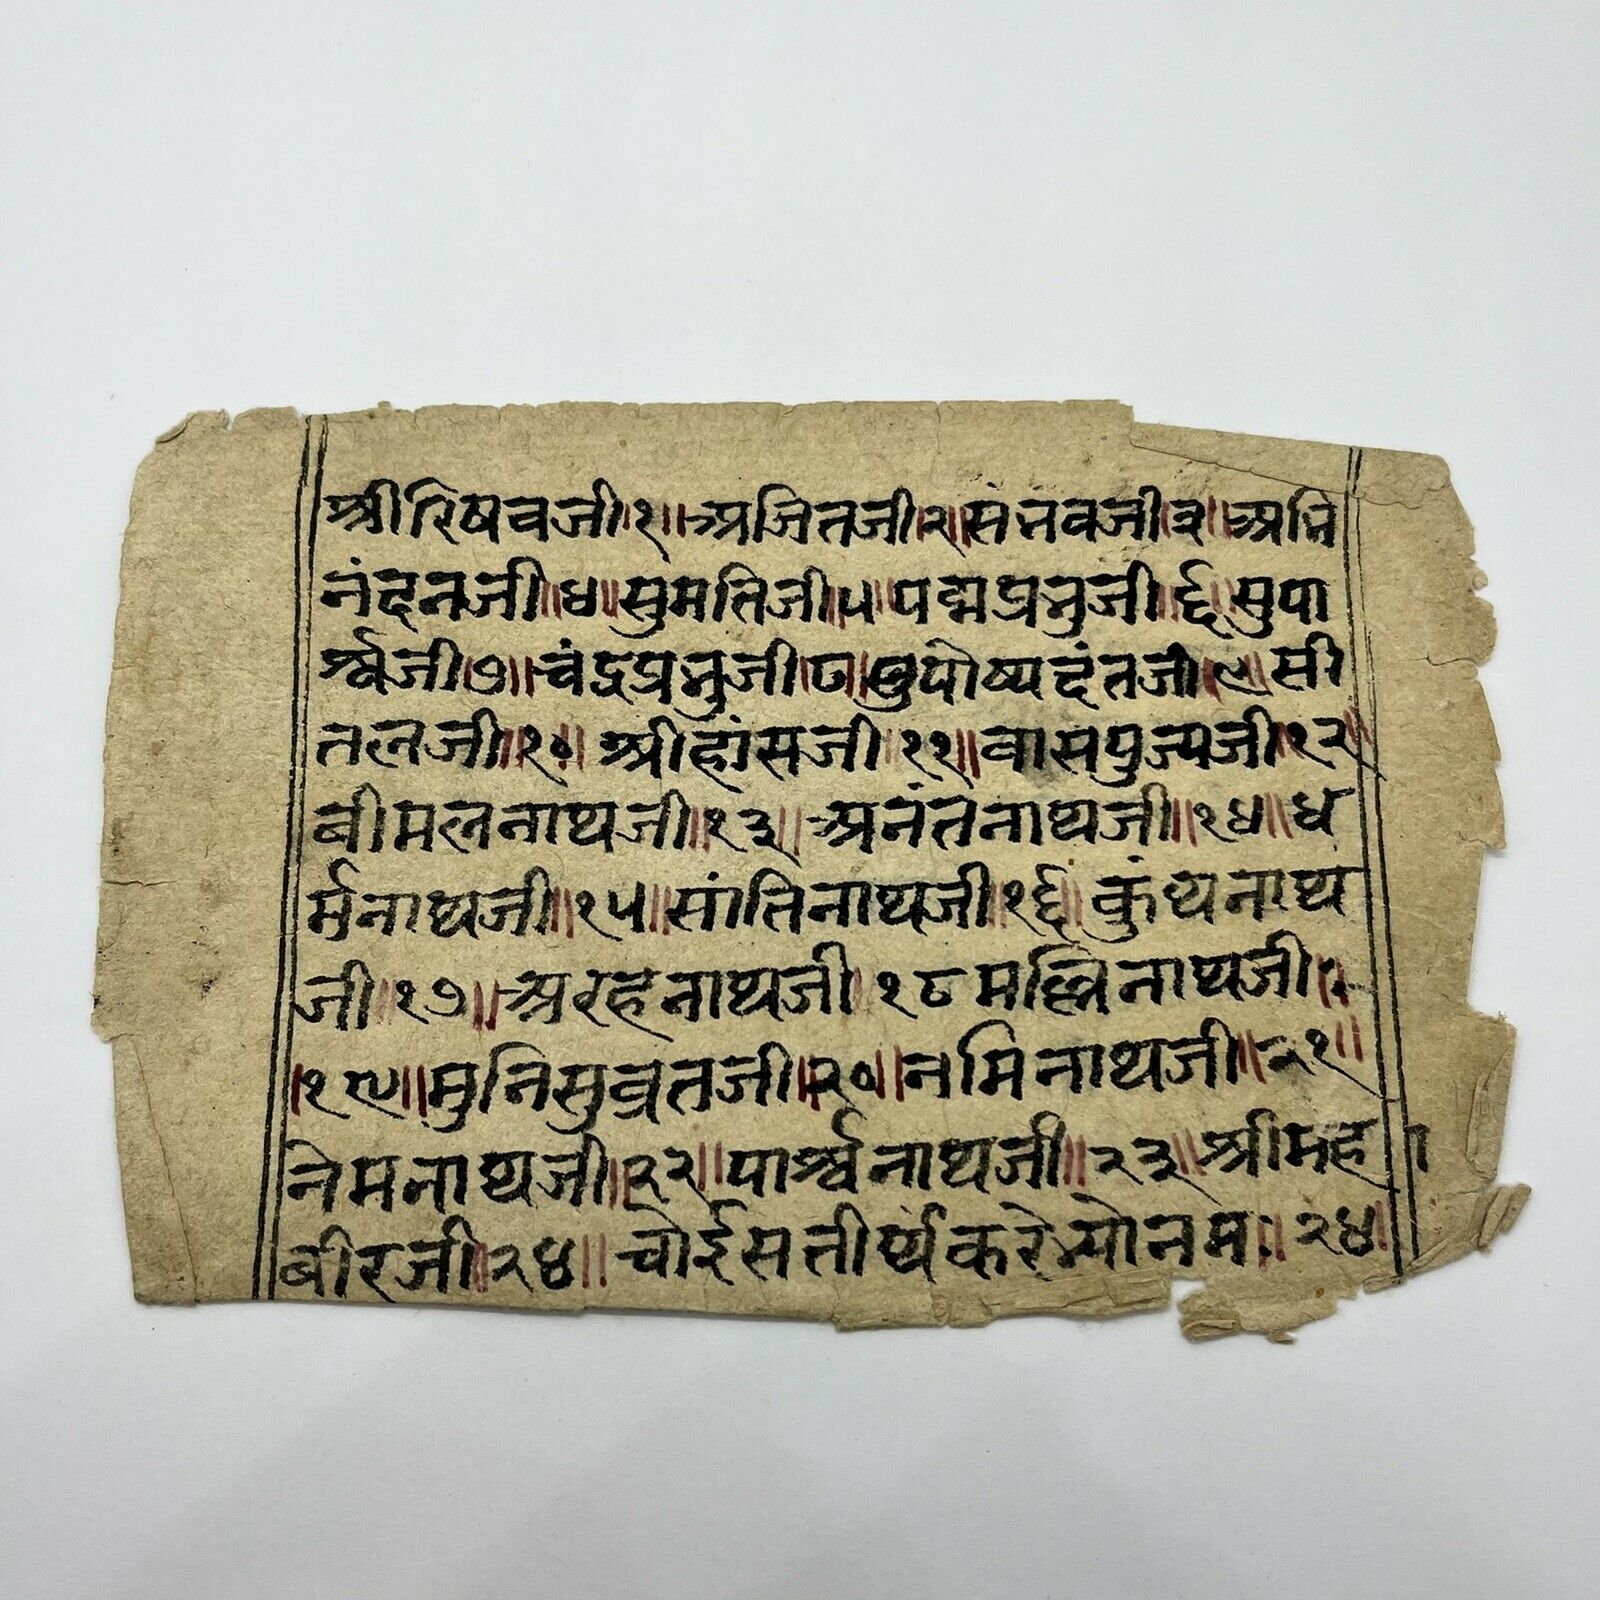 श्रीरिषवजी॥१॥अजितजी॥२॥संभवजी॥३॥अभि
नंदनजी॥४॥सुमतिजी॥५॥पद्मप्रभुजी॥६॥सुपा
र्श्वजी॥७॥चंद्रप्रभुजी॥८॥पुपोष्यदंतजी॥९॥सी
तलजी॥१०॥श्रीहांसजी॥११॥वासपुज्यजी॥१२॥
बीमलनाथजी॥१३॥अनंतनाथजी॥१४॥ध
र्मनाथजी॥१५॥सांतिनाथजी॥१६॥कुंथनाथ
जी॥१७॥अरहनाथजी॥१८मल्लिनाथजी॥
॥१९॥मुनिसुव्रतजी॥२०॥नमिनाथजी॥२१॥
नेमनाथजी॥२२॥पार्श्वनाथजी॥२३॥श्रीमहा
बीरजी॥२४॥चोईसतीर्थंकरेभ्योनमः॥२४॥